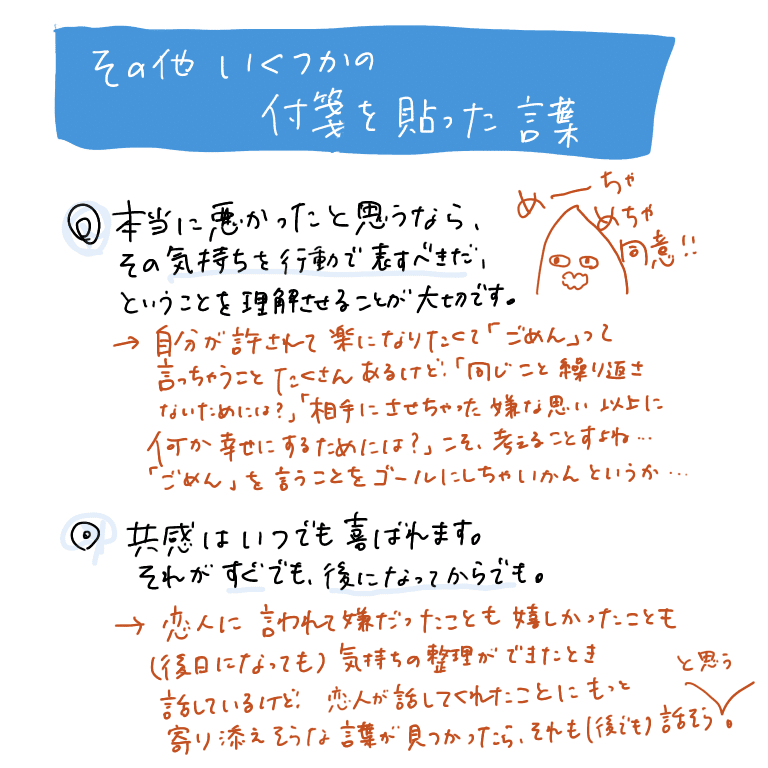 その他 いくつかの
付箋を貼った言葉
本当に悪かったと思うなら、
その気持ちを行動で表すべきだ、
ということを理解させることが大切です。
めーちゃ
めちゃ
同意!!
→ 自分が許されて楽になりたくて「ごめん」って
言っちゃうことたくさんあるけど、「同じこと繰り返さ
ないためには?」「相手にさせちゃった嫌な思い以上に
何か幸せにするためには?」こそ、考えることすよね…
「ごめん」を言うことをゴールにしちゃいかんというか…
共感はいつでも喜ばれます。
それがすぐでも、後になってからでも。
→ 恋人に言われて嫌だったことも嬉しかったことも
(後日になっても)気持ちの整理ができたとき
話しているけど、恋人が話してくれたことにもっと
寄り添えそうな言葉が見つかったら、それも(後でも)話そう
と思う
。